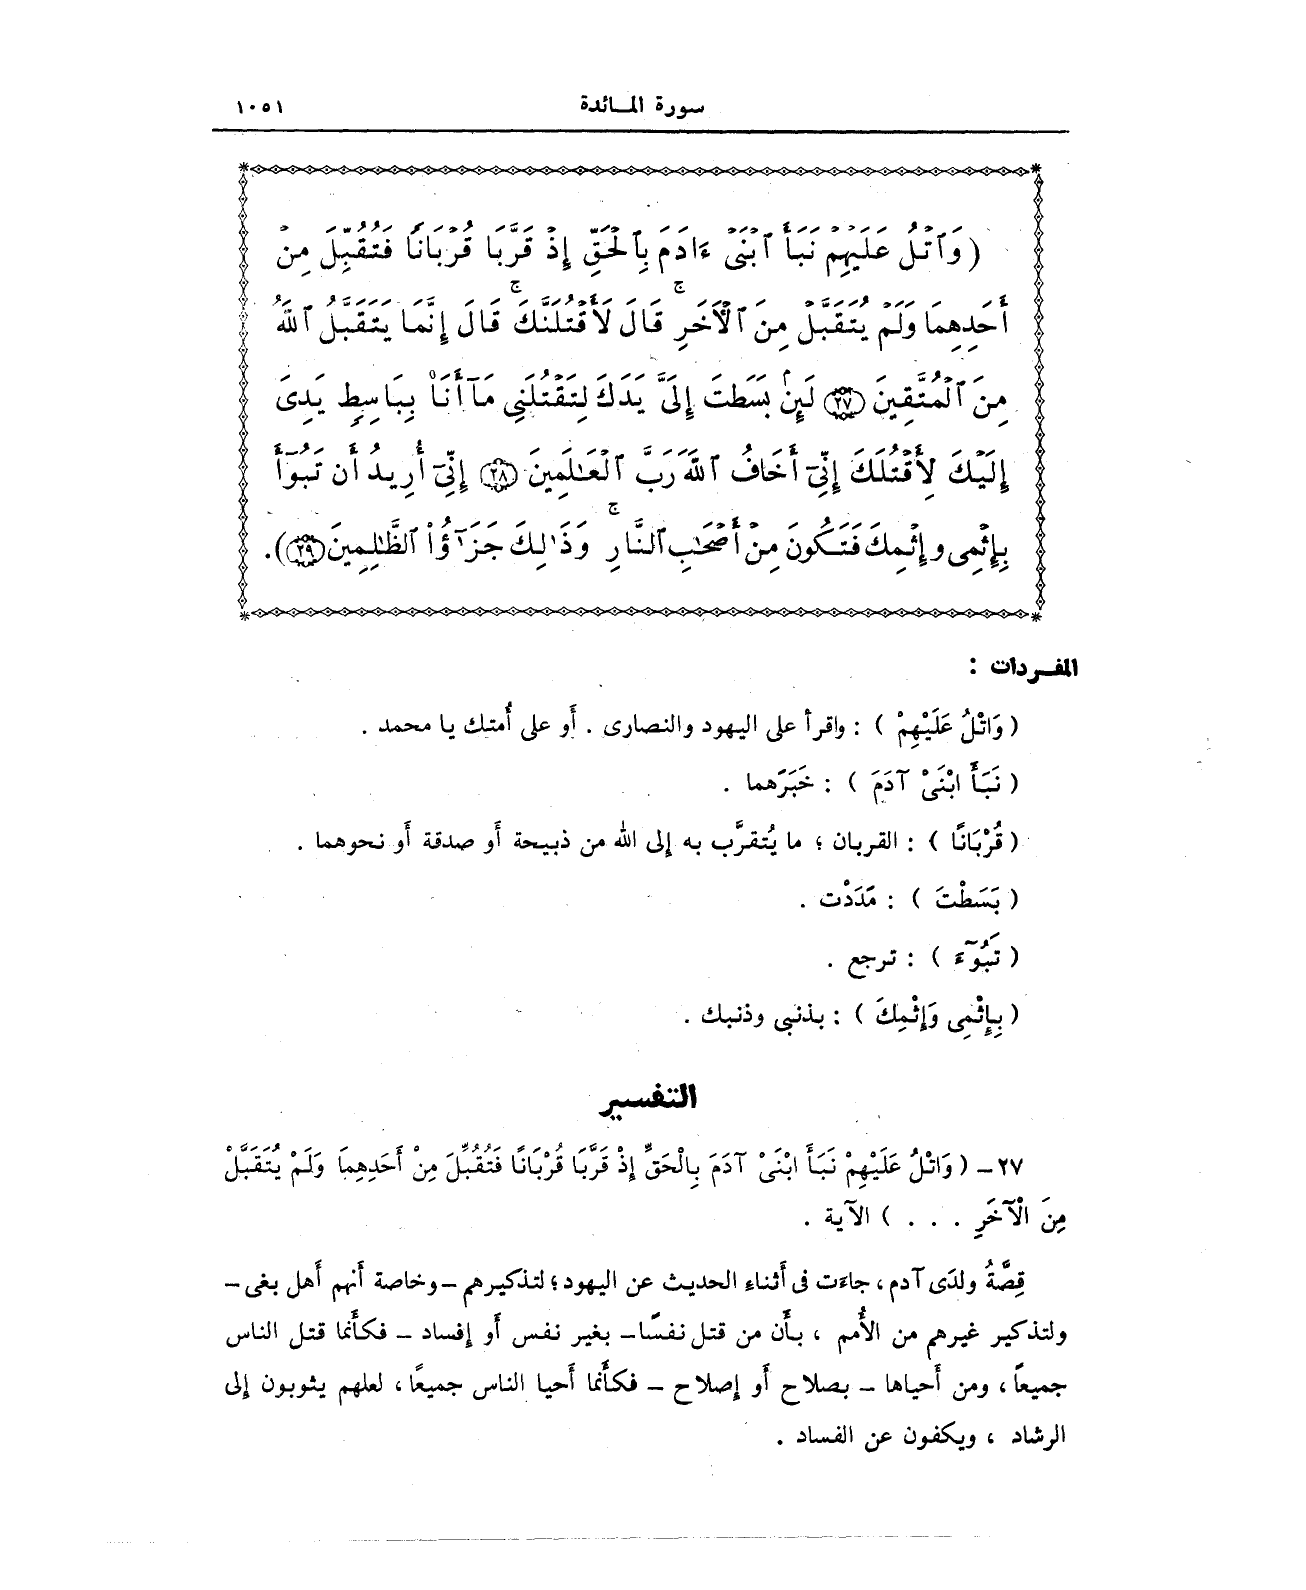 سورة المائدة ١٠٥١
( وَٱتْلُ عَلَيْهِمْ نَبَأَ ٱبْنَىْ ءَادَمَ بِٱلْحَقِّ إِذْ قَرَّبَا قُرْبَانًا فَتُقُبِّلَ مِنْ
أَحَدِهِمَا وَلَمْ يُتَقَبَّلْ مِنَ ٱلْأَخَرِ ۚ قَالَ لَأَقْتُلَنَّكَ ۚ قَالَ إِنَّمَا يَتَقَبَّلُ ٱللَّهُ
مِنَ ٱلْمُتَّقِينَ ﴿٢٧﴾ لَئِنۢ بَسَطتَ إِلَىَّ يَدَكَ لِتَقْتُلَنِى مَآ أَنَا۠ بِبَاسِطٍ يَدِىَ
إِلَيْكَ لِأَقْتُلَكَ إِنِّىٓ أَخَافُ ٱللَّهَ رَبَّ ٱلْعَـٰلَمِينَ ﴿٢٨﴾ إِنِّىٓ أُرِيدُ أَن تَبُوٓأَ
بِإِثْمِى وَإِثْمِكَ فَتَكُونَ مِنْ أَصْحَـٰبِ ٱلنَّارِ ۚ وَذَٰلِكَ جَزَـٰٓؤُا۟ ٱلظَّـٰلِمِينَ ﴿٢٩﴾ ).
المفـردات :
( وَاتْلُ عَلَيْهِمْ ) : واقرأ على اليهود والنصارى . أَو على أُمتك يا محمد .
( نَبَأَ ابْنَىْ آدَمَ ) : خَبَرَهما .
( قُرْبَانًا ) : القربان ؛ ما يُتقرَّب به إلى الله من ذبيحة أَو صدقة أَو نحوهما .
( بَسَطْتَ ) : مَدَدْت .
( تَبُوٓءَ ) : ترجع .
( بِإِثْمِى وَإِثْمِكَ ) : بذنبى وذنبك .
التفسير
٢٧ – ( وَاتْلُ عَلَيْهِمْ نَبَأَ ابْنَىْ آدَمَ بِالْحَقِّ إِذْ قَرَّبَا قُرْبَانًا فَتُقُبِّلَ مِنْ أَحَدِهِمَا وَلَمْ يُتَقَبَّلْ
مِنَ الْآخَرِ . . . ) الآية .
قِصَّةُ ولدَى آدم ، جاءَت فى أَثناءِ الحديث عن اليهود ؛ لتذكيرهم – وخاصة أَنهم أَهل بغى –
ولتذكير غيرهم من الأُمم ، بأَن من قتل نفسًا – بغير نفس أَو إفساد – فكأَنما قتل الناس
جميعاً ، ومن أَحياها – بصلاح أَو إصلاح – فكأَنما أَحيا الناس جميعًا ، لعلهم يثوبون إلى
الرشاد ، ويكفون عن الفساد .